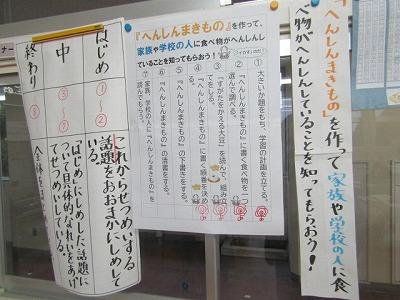 「へんしんまきもの」を作って家族や学校の人に食
べ物がへんしんしていることを知ってもらおう！
『へんしんまきもの』を作って、
家族や学校の人に食べ物がへんしん
していることを知ってもらおう！
① 大きいか題をもち、学習の計画を立てる。
② 『へんしんまきもの』に書く食べ物を一つ
選んで調べる。
③ 『すがたをかえる大豆』を読んで、組み立
てをしる。
④ 『へんしんまきもの』に書く順番を決め
⑤ 『へんしんまきもの』の下書きをする。
⑥ 『へんしんまきもの』の清書をする。
⑦ 家族、学校の人に『へんしんまきもの』を
読んでもらう。
はじめ
①〜②
これからせつめいする
話題をおおまかにしめして
いる。
中
③〜⑦
「はじめ」にしめした話題に
ついて具体的なれいをあげ
てせつめいしている。
終わり
⑧
全体を